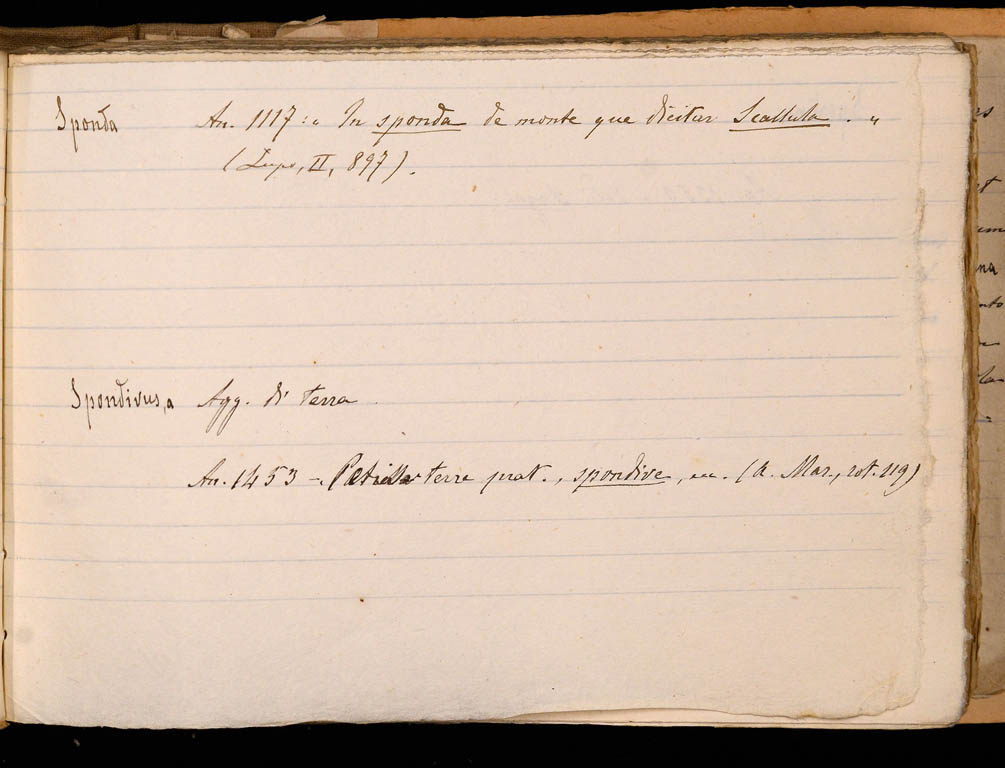 Sponda An. 1117: „ In sponda de monte que dicitur Scallula . „
(Lupo, II, 897).
Spondivus, a Agg. di terra
An. 1453 - Petiola terre prat., spondive, ecc. (A. Mar., rot. 119)